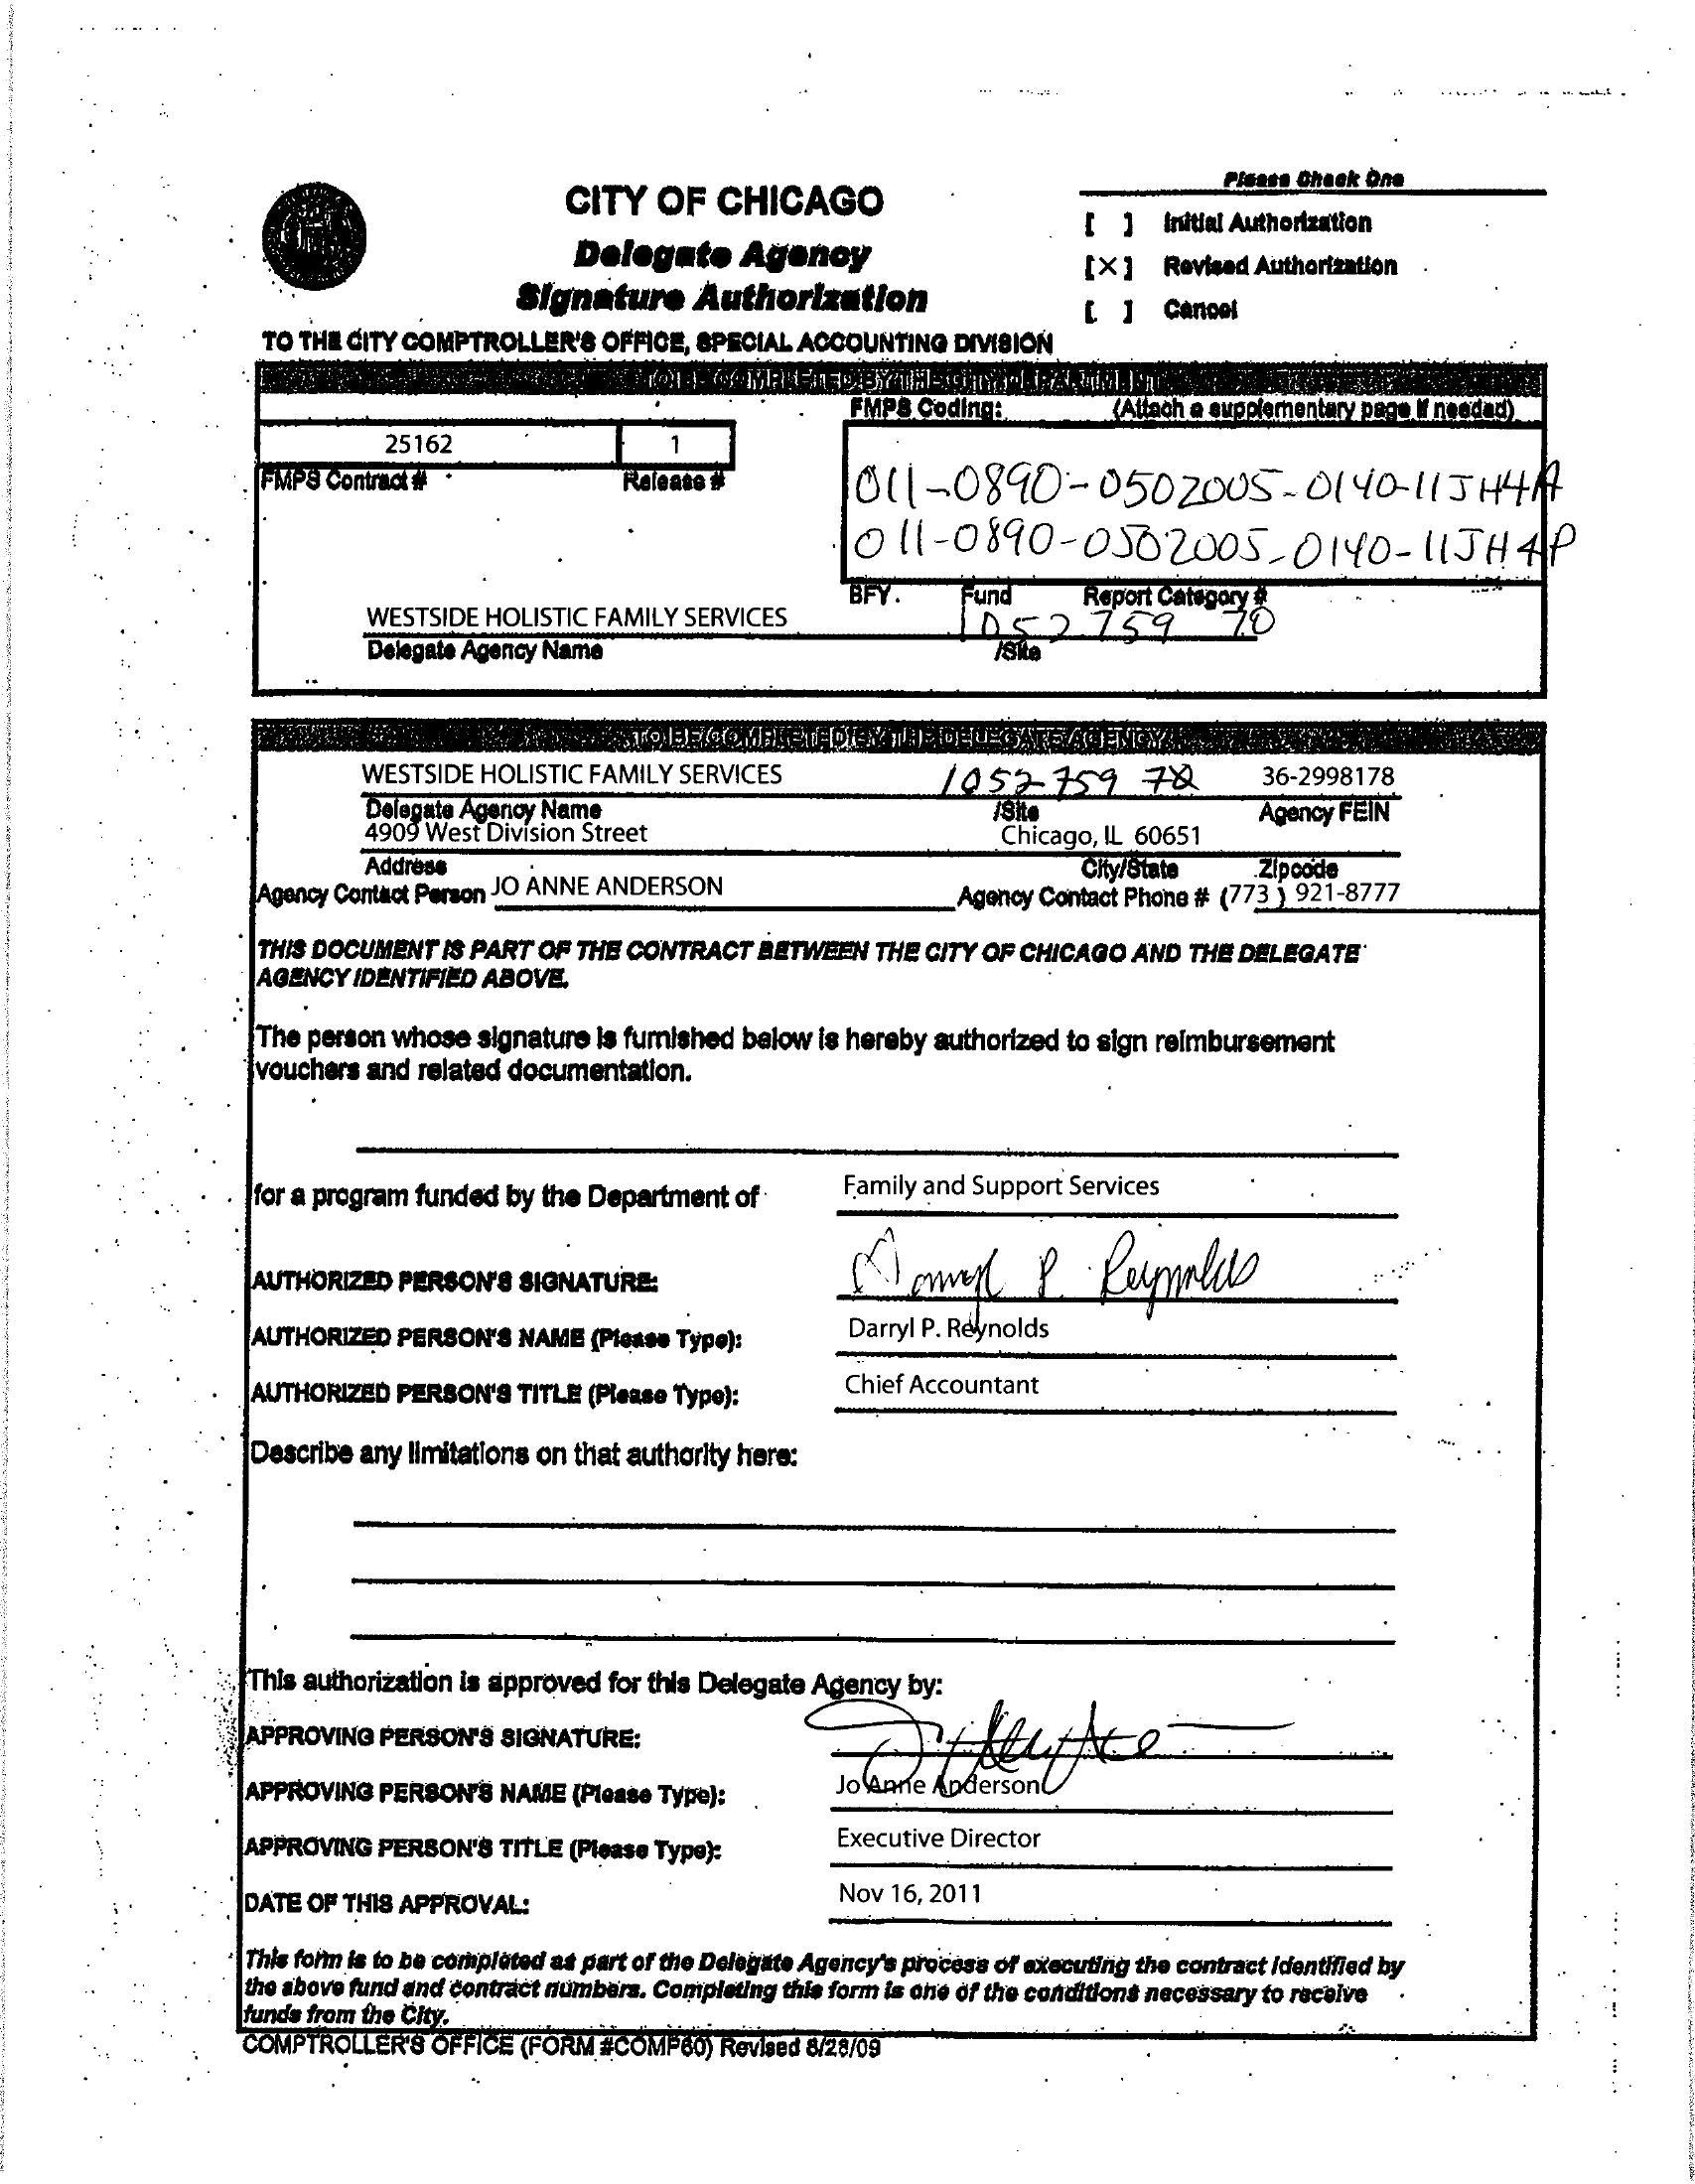 Please Check One
CITY OF CHICAGO
[ ] Initial Authorization
Delegate Agency
[X] Revised Authorization
Signature Authorization
[ ] Cancel
TO THE CITY COMPTROLLER'S OFFICE, SPECIAL ACCOUNTING DIVISION
TO BE COMPLETED BY THE CITY DEPARTMENT
FMPS Coding: (Attach a supplementary page if needed)
25162 1
FMPS Contract # Release #
011-0890-0502005-0140-11JH4A
011-0890-0502005-0140-11JH4P
BFY. Fund Report Category #
WESTSIDE HOLISTIC FAMILY SERVICES 1052759 70
Delegate Agency Name /Site
TO BE COMPLETED BY THE DELEGATE AGENCY
WESTSIDE HOLISTIC FAMILY SERVICES 1052759 70 36-2998178
Delegate Agency Name /Site Agency FEIN
4909 West Division Street Chicago, IL 60651
Address City/State Zipcode
Agency Contact Person JO ANNE ANDERSON Agency Contact Phone # (773 ) 921-8777
THIS DOCUMENT IS PART OF THE CONTRACT BETWEEN THE CITY OF CHICAGO AND THE DELEGATE
AGENCY IDENTIFIED ABOVE.
The person whose signature is furnished below is hereby authorized to sign reimbursement
vouchers and related documentation.
for a program funded by the Department of Family and Support Services
AUTHORIZED PERSON'S SIGNATURE: Darryl P. Reynolds
AUTHORIZED PERSON'S NAME (Please Type): Darryl P. Reynolds
AUTHORIZED PERSON'S TITLE (Please Type): Chief Accountant
Describe any limitations on that authority here:
This authorization is approved for this Delegate Agency by:
APPROVING PERSON'S SIGNATURE:
APPROVING PERSON'S NAME (Please Type): Jo Anne Anderson
APPROVING PERSON'S TITLE (Please Type): Executive Director
DATE OF THIS APPROVAL: Nov 16, 2011
This form is to be completed as part of the Delegate Agency's process of executing the contract identified by
the above fund and contract numbers. Completing this form is one of the conditions necessary to receive
funds from the City.
COMPTROLLER'S OFFICE (FORM #COMP60) Revised 8/28/09